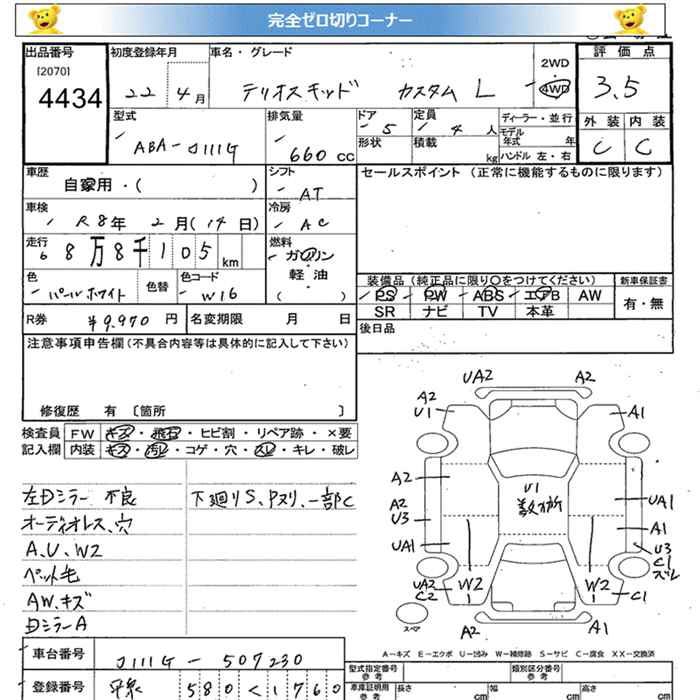 完全ゼロ切りコーナー
出品番号 初度登録年月 車名・グレード 2WD 評価点
[2070]
4434 22年4月 テリオスキッド カスタム L 4WD 3.5
型式 排気量 ドア 定員 ディーラー・並行 外装 内装
ABA-J111G 660cc 5 4人 モデル年式 年 C C
形状 積載 kg ハンドル 左・右
車歴 シフト セールスポイント (正常に機能するものに限ります)
自家用・( ) AT
車検 冷房
R8年2月(14日) AC
走行 燃料
8万8千105km ガソリン
軽・油
( )
色 色替 色コード 装備品(純正品に限り〇をつけてください) 新車保証書
パールホワイト W16 PS PW ABS エアB AW 有・無
SR ナビ TV 本革
R券 ¥9,970円 名変期限 月 日 後日品
注意事項申告欄(不具合内容等は具体的に記入して下さい)
修復歴 有 〔箇所 〕
検査員 FW キズ・飛石・ヒビ割・リペア跡・×要
記入欄 内装 キズ・汚レ・コゲ・穴・スレ・キレ・破レ
左Dミラー 不良 下廻りS、Pヌリ、一部C
オーディオレス、穴
A、U、W2
ペット毛
AW、キズ
Dミラー A
UA2 A2
A2
U1 A1
A2 U1
数ヶ所
A2
U3 UA1
A1
UA1 U3
C1
スレ
UA2
C2 W2 W2 C1
スペア A2 A1
A-キズ E-エクボ U-凹み W-補修跡 S-サビ C-腐食 XX-交換済
車台番号 J111G-507230 型式指定番号 参考 類別区分番号 参考
登録番号 580 く 1760 車庫証明用 参考 長さ cm 幅 cm 高さ cm